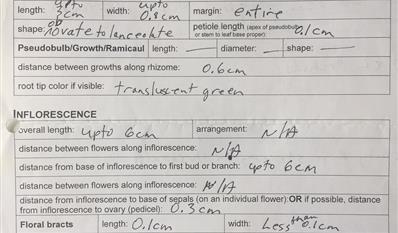 length: upto 3cm width: upto 0.8cm margin: entire
shape: obovate to lanceolate petiole length (apex of pseudobulb or stem to leaf base proper): 0.1cm
Pseudobulb/Growth/Ramicaul length: — diameter: — shape: —
distance between growths along rhizome: 0.6cm
root tip color if visible: transluscent green
INFLORESCENCE
overall length: upto 6cm arrangement: N/A
distance between flowers along inflorescence: N/A
distance from base of inflorescence to first bud or branch: upto 6cm
distance between flowers along inflorescence: N/A
distance from inflorescence to base of sepals (on an individual flower) OR if possible, distance
from inflorescence to ovary (pedicel): 0.3cm
Floral bracts length: 0.1cm width: Less than 0.1cm